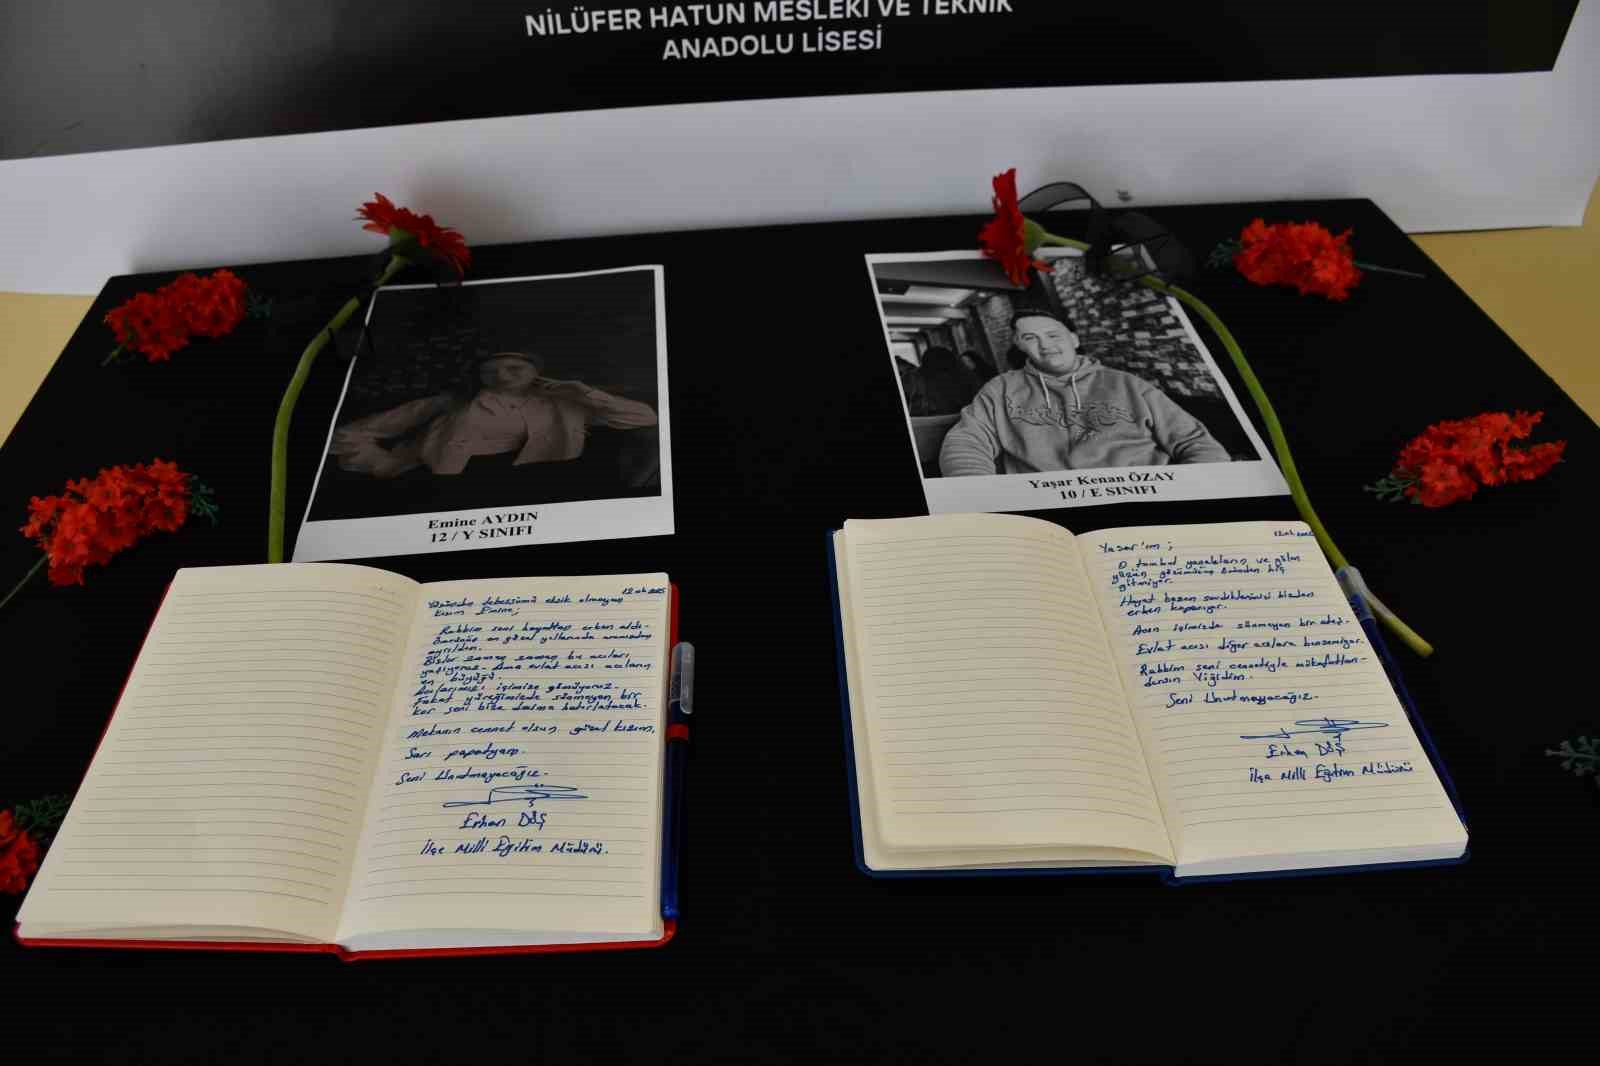 NİLÜFER HATUN MESLEKİ VE TEKNİK
ANADOLU LİSESİ
Emine AYDIN
12 / Y SINIFI
Yaşar Kenan ÖZAY
10 / E SINIFI
12.02.2025
Yüzünden tebessümü eksik olmayan
kızım Emine;
Rabbim seni hayattan erken aldı.
Ömrünün en güzel yıllarında aramızdan
ayrıldın.
Bizler zaman zaman bu acıları
yaşıyoruz. Ama evlat acısı acıların
en büyüğü
Acılarımızı içimize gömüyoruz.
Fakat yüreğimizde sönmeyen bir
kor seni bize daima hatırlatacak.
Mekanın cennet olsun güzel kızım,
Sarı papatyam.
Seni Unutmayacağız.
Erhan DÖŞ
İlçe Milli Eğitim Müdürü.
Yaşar'ım;
O tombul yanakların ve gülen
yüzün gözümüzün önünden hiç
gitmiyor.
Hayat bazen sevdiklerimizi bizden
erken koparıyor.
Acın içimizde sönmeyen bir
Evlat acısı diğer acılara benzemiyor.
Rabbim seni cennetiyle mükafatlan-
dırsın Yiğidim.
Seni Unutmayacağız.
Erhan DÖŞ
İlçe Milli Eğitim Müdürü